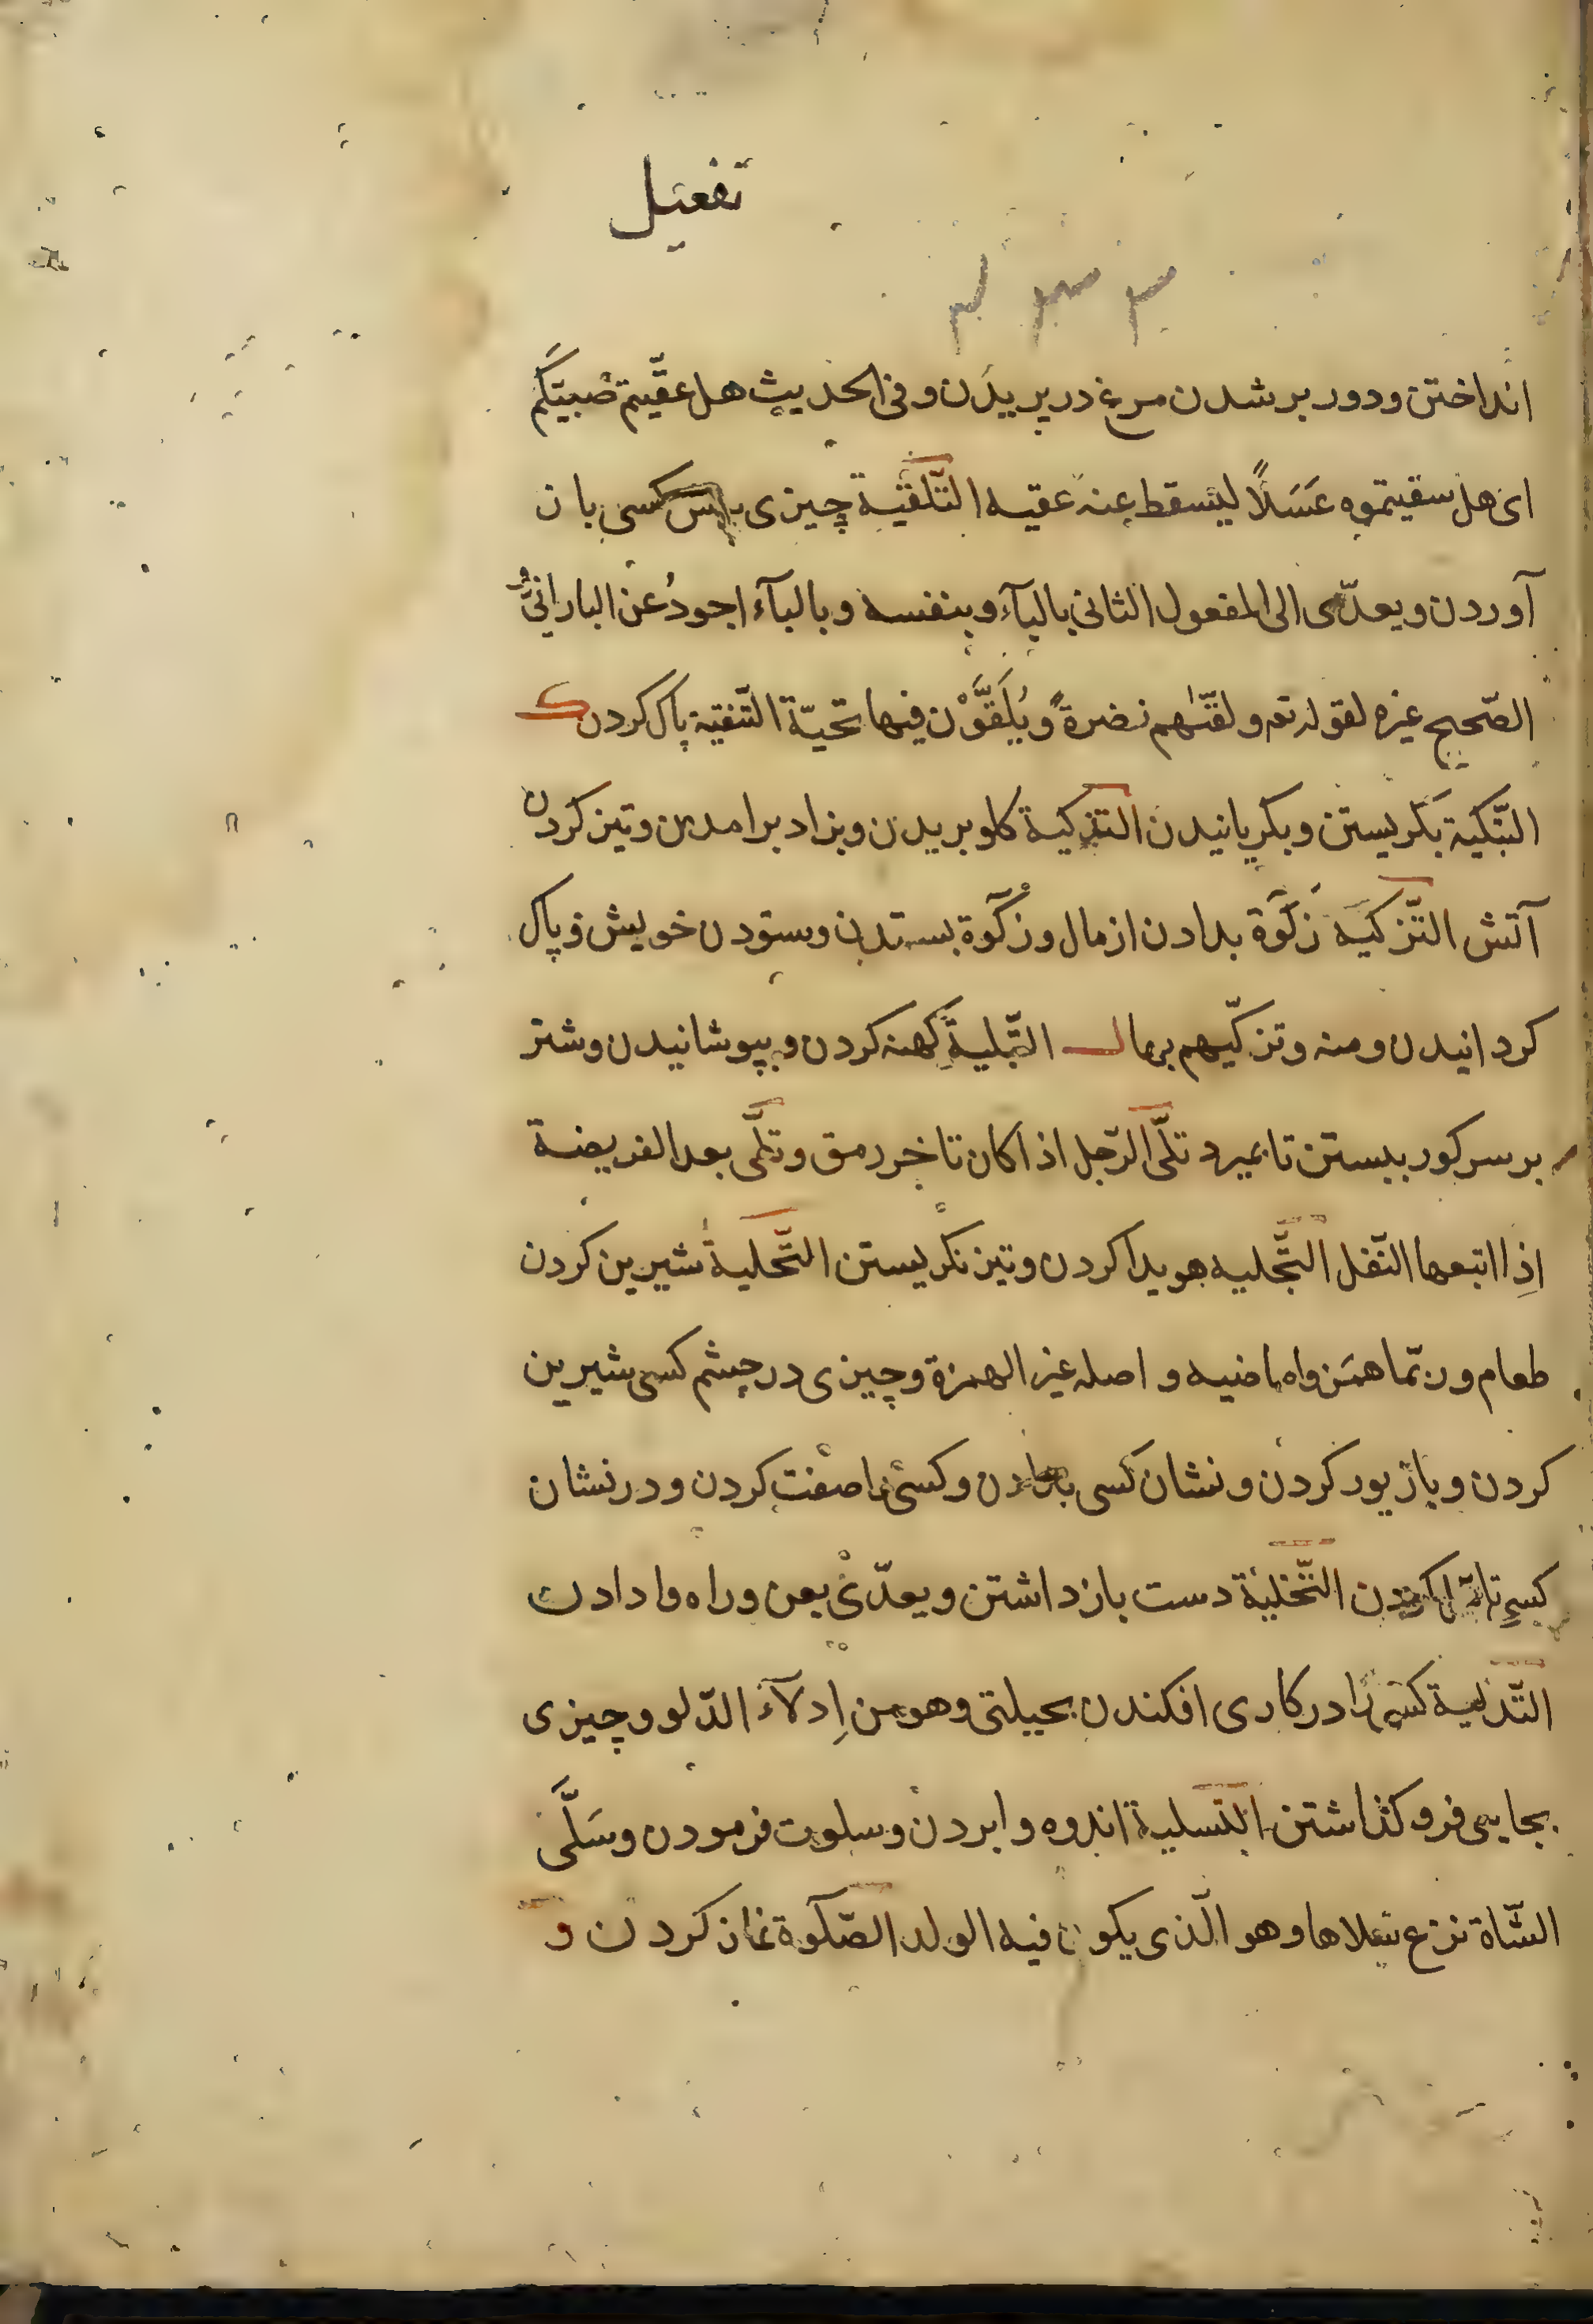 تفعیل
انداختن ودور برشدن مرغ در پریدن وفی الحدیث هل عقّیتم صبیّکم
ای هل سقیتموه عَسَلاً لیسقط عنه عقیه التّلقّیة چیزی کسی بان
آوردن ویعدّی الی المفعول الثانی بالبآء وبنفسه وبالبآء اجودُ عن البارانیّ و
الصّحیح غیره لقوله تعه ولقّٰهم نضرةً ویُلَقَّوْن فیها تحیّة التّنقیة پاک کردن ک
التبّکیة بکریستن وبکریانیدن التذکیة کلو بریدن وبزاد برامدن وتیز کردن
آتش التّزکیه زَکَوٰة بدادن از مال وزکوٰة بستدن وستودن خویش وپاک
کردانیدن ومنه وتزکّیهم بها ل التّبلیة کهنه کردن وبپوشانیدن وشتر
بر سر کور ببستن تا بمیرد تلّی الرّجل اذا کان تاخر رمق وتلّی بعد الفریضة
اذِا اتبعها النّفل التّجلیه هویدا کردن وتیز نکریستن التّحلیة شیرین کردن
طعام وربّما همَزواه ماضیه و اصله غیر الهمزة وچیزی در چشم کسی شیرین
کردن وبازیور کردن ونشان کسی بدادن وکسی را صفت کردن ودر نشان
کسی کردن التّخلیة دست بازداشتن ویعدّی بعن وراه وا دادن
التّدلیة کسی را در کاری افکندن بحیلتی وهو من اِدلآء الدّلو وچیزی
بجایی فرو کذاشتن التسلیة اندوه وا بردن وسلوت فرمودن وسَلَّی
الشّاة نزع سلاها وهو الّذی یکون فیه الولد الصّلوٰة نماز کردن و